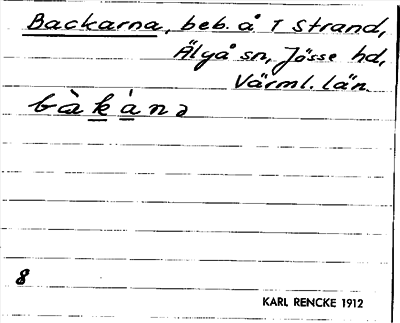 Backarna, beb. å T Strand,
Älgå sn, Jösse hd,
Värml. län.
bàkàna
8
KARL RENCKE 1912